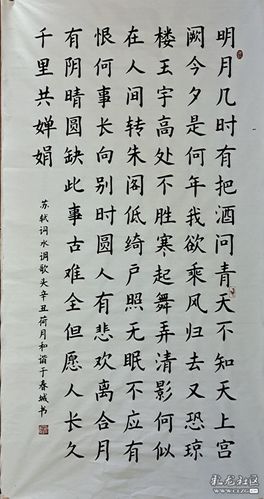 明月几时有把酒问青天不知天上宫
阙今夕是何年我欲乘风归去又恐琼
楼玉宇高处不胜寒起舞弄清影何似
在人间转朱阁低绮户照无眠不应有
恨何事长向别时圆人有悲欢离合月
有阴晴圆缺此事古难全但愿人长久
千里共婵娟
苏轼词水调歌头辛丑荷月和谐于春城书
彩龙社区